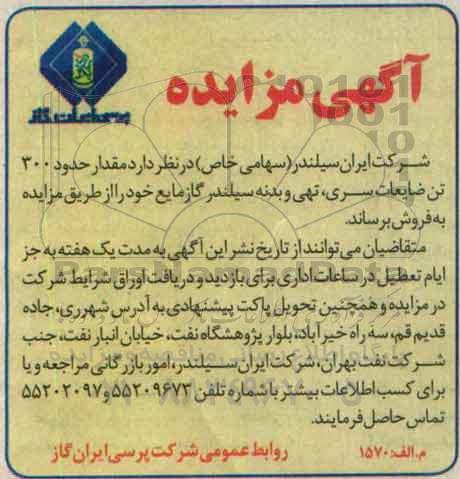 آگهی مزایده
پرسی ایران گاز
شرکت ایران سیلندر (سهامی خاص) در نظر دارد مقدار حدود ۳۰۰
تن ضایعات سری، تهی و بدنه سیلندر گاز مایع خود را از طریق مزایده
به فروش برساند.
متقاضیان می‌توانند از تاریخ نشر این آگهی به مدت یک هفته به جز
ایام تعطیل در ساعات اداری برای بازدید و دریافت اوراق شرایط شرکت
در مزایده و همچنین تحویل پاکت پیشنهادی به آدرس شهرری، جاده
قدیم قم، سه راه خیرآباد، بلوار پژوهشگاه نفت، خیابان انبار نفت، جنب
شرکت نفت بهران، شرکت ایران سیلندر، امور بازرگانی مراجعه و یا
برای کسب اطلاعات بیشتر با شماره تلفن ۵۵۲۰۹۶۷۳ و ۵۵۲۰۲۰۹۷
تماس حاصل فرمایند.
م.الف: ۱۵۷۰ روابط عمومی شرکت پرسی ایران گاز